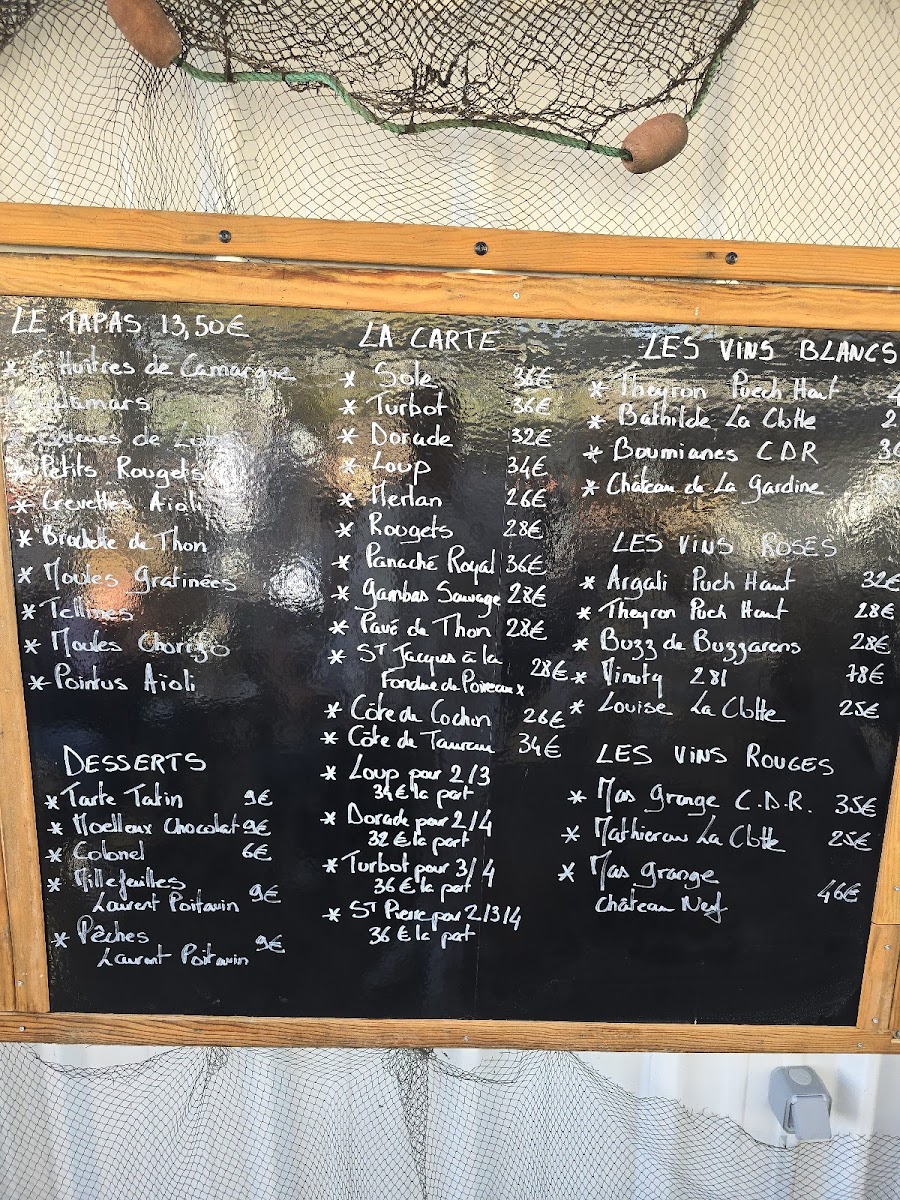 LE TAPAS 13,50€
* 6 Huîtres de Camargue
* Calamars
* Queues de Lotte
* Petits Rougets
* Crevettes Aïoli
* Brochette de Thon
* Moules Gratinées
* Tellines
* Moules Chorizo
* Pointus Aïoli
DESSERTS
* Tarte Tatin 9€
* Moelleux Chocolat 9€
* Colonel 6€
* Millefeuilles
Laurent Poitavin 9€
* Pêches 9€
Laurent Poitavin
LA CARTE
* Sole 36€
* Turbot 36€
* Dorade 32€
* Loup 34€
* Merlan 26€
* Rougets 28€
* Panaché Royal 36€
* Gambas Sauvage 28€
* Pavé de Thon 28€
* ST Jacques à la
Fondue de Poireaux 28€
* Côte de Cochon 26€
* Côte de Taureau 34€
* Loup pour 2/3
34€ la part
* Dorade pour 2/4
32€ la part
* Turbot pour 3/4
36€ la part
* ST Pierre pour 2/3/4
36€ la part
LES VINS BLANCS
* Theyron Puech Haut
* Bathilde La Clotte
* Boumianes CDR
* Château de La Gardine
LES VINS ROSES
* Argali Puch Haut 32€
* Theyron Puch Haut 28€
* Buzz de Buzzarens 28€
* Minuty 281 78€
* Louise La Clotte 25€
LES VINS ROUGES
* Mas Grange C.D.R. 35€
* Mathierau La Clotte 25€
* Mas Grange
Château Neuf 46€